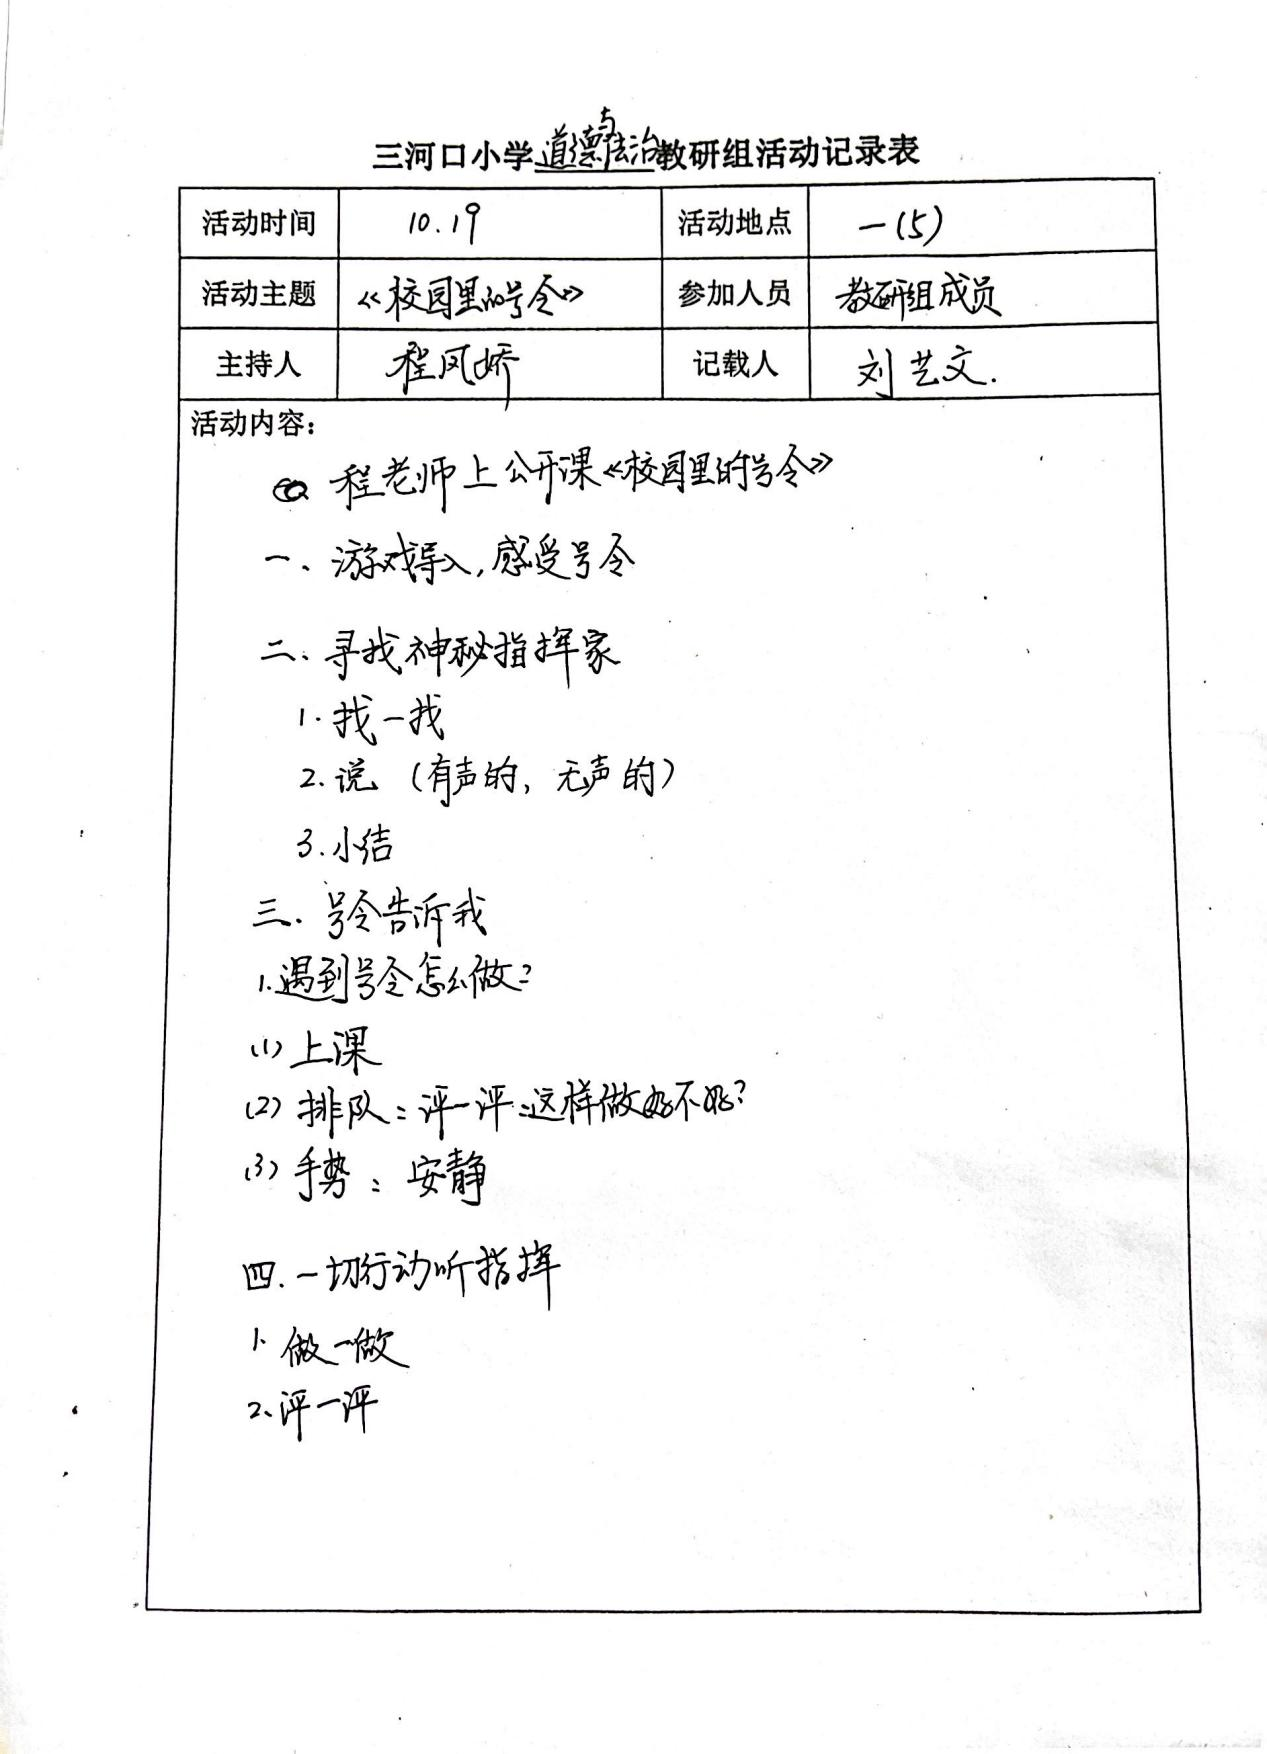 三河口小学道德与法治教研组活动记录表
活动时间 10.19 活动地点 一(5)
活动主题 《校园里的号令》 参加人员 教研组成员
主持人 程凤娇 记载人 刘艺文.
活动内容：
程老师上公开课《校园里的号令》
一、游戏导入,感受号令
二、寻找神秘指挥家
1.找一找
2.说（有声的，无声的）
3.小结
三.号令告诉我
1.遇到号令怎么做?
(1)上课
(2)排队:评一评:这样做好不好?
(3)手势:安静
四.一切行动听指挥
1.做一做
2、评一评